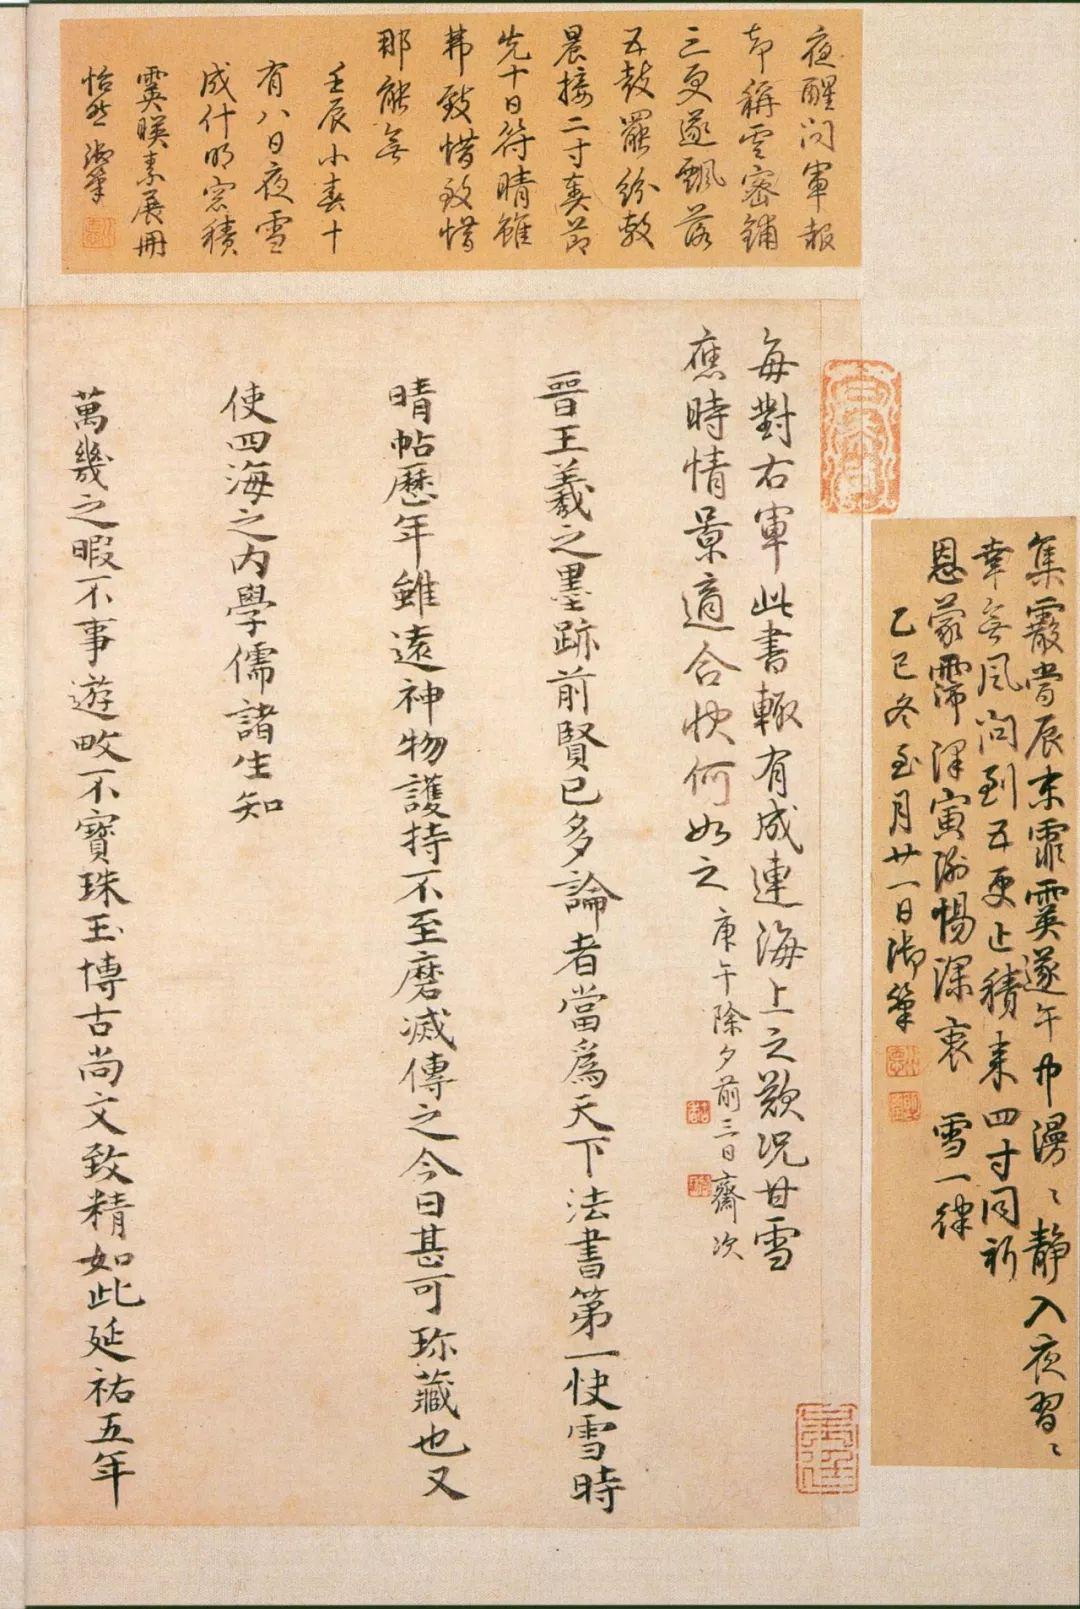 夜醒問軍報
却稱雲密鋪
三更遂飄落
五鼓罷紛敷
晨接二寸奏
先十日符晴雖
弗致惜致惜
那能無
壬辰小春十
有八日夜雪
成什明窓積
霙暎素展冊
怡然御筆
集霰當辰末霏霙遂午中漫〻靜入夜習〻
幸無風問到五更止積來四寸同祈
恩蒙霈澤寅謝惕深衷 雪一律
乙巳冬至月廿一日御筆
每對右軍此書輒有成連海上之歎況甘雪
應時情景適合快何如之 庚午除夕前三日齋次
晉王羲之墨跡前賢已多論者當爲天下法書第一快雪時
晴帖曆年雖遠神物護持不至磨滅傳之今日甚可珎藏也又
使四海之內學儒諸生知
萬幾之暇不事遊畋不寶珠玉博古尚文致精如此延祐五年